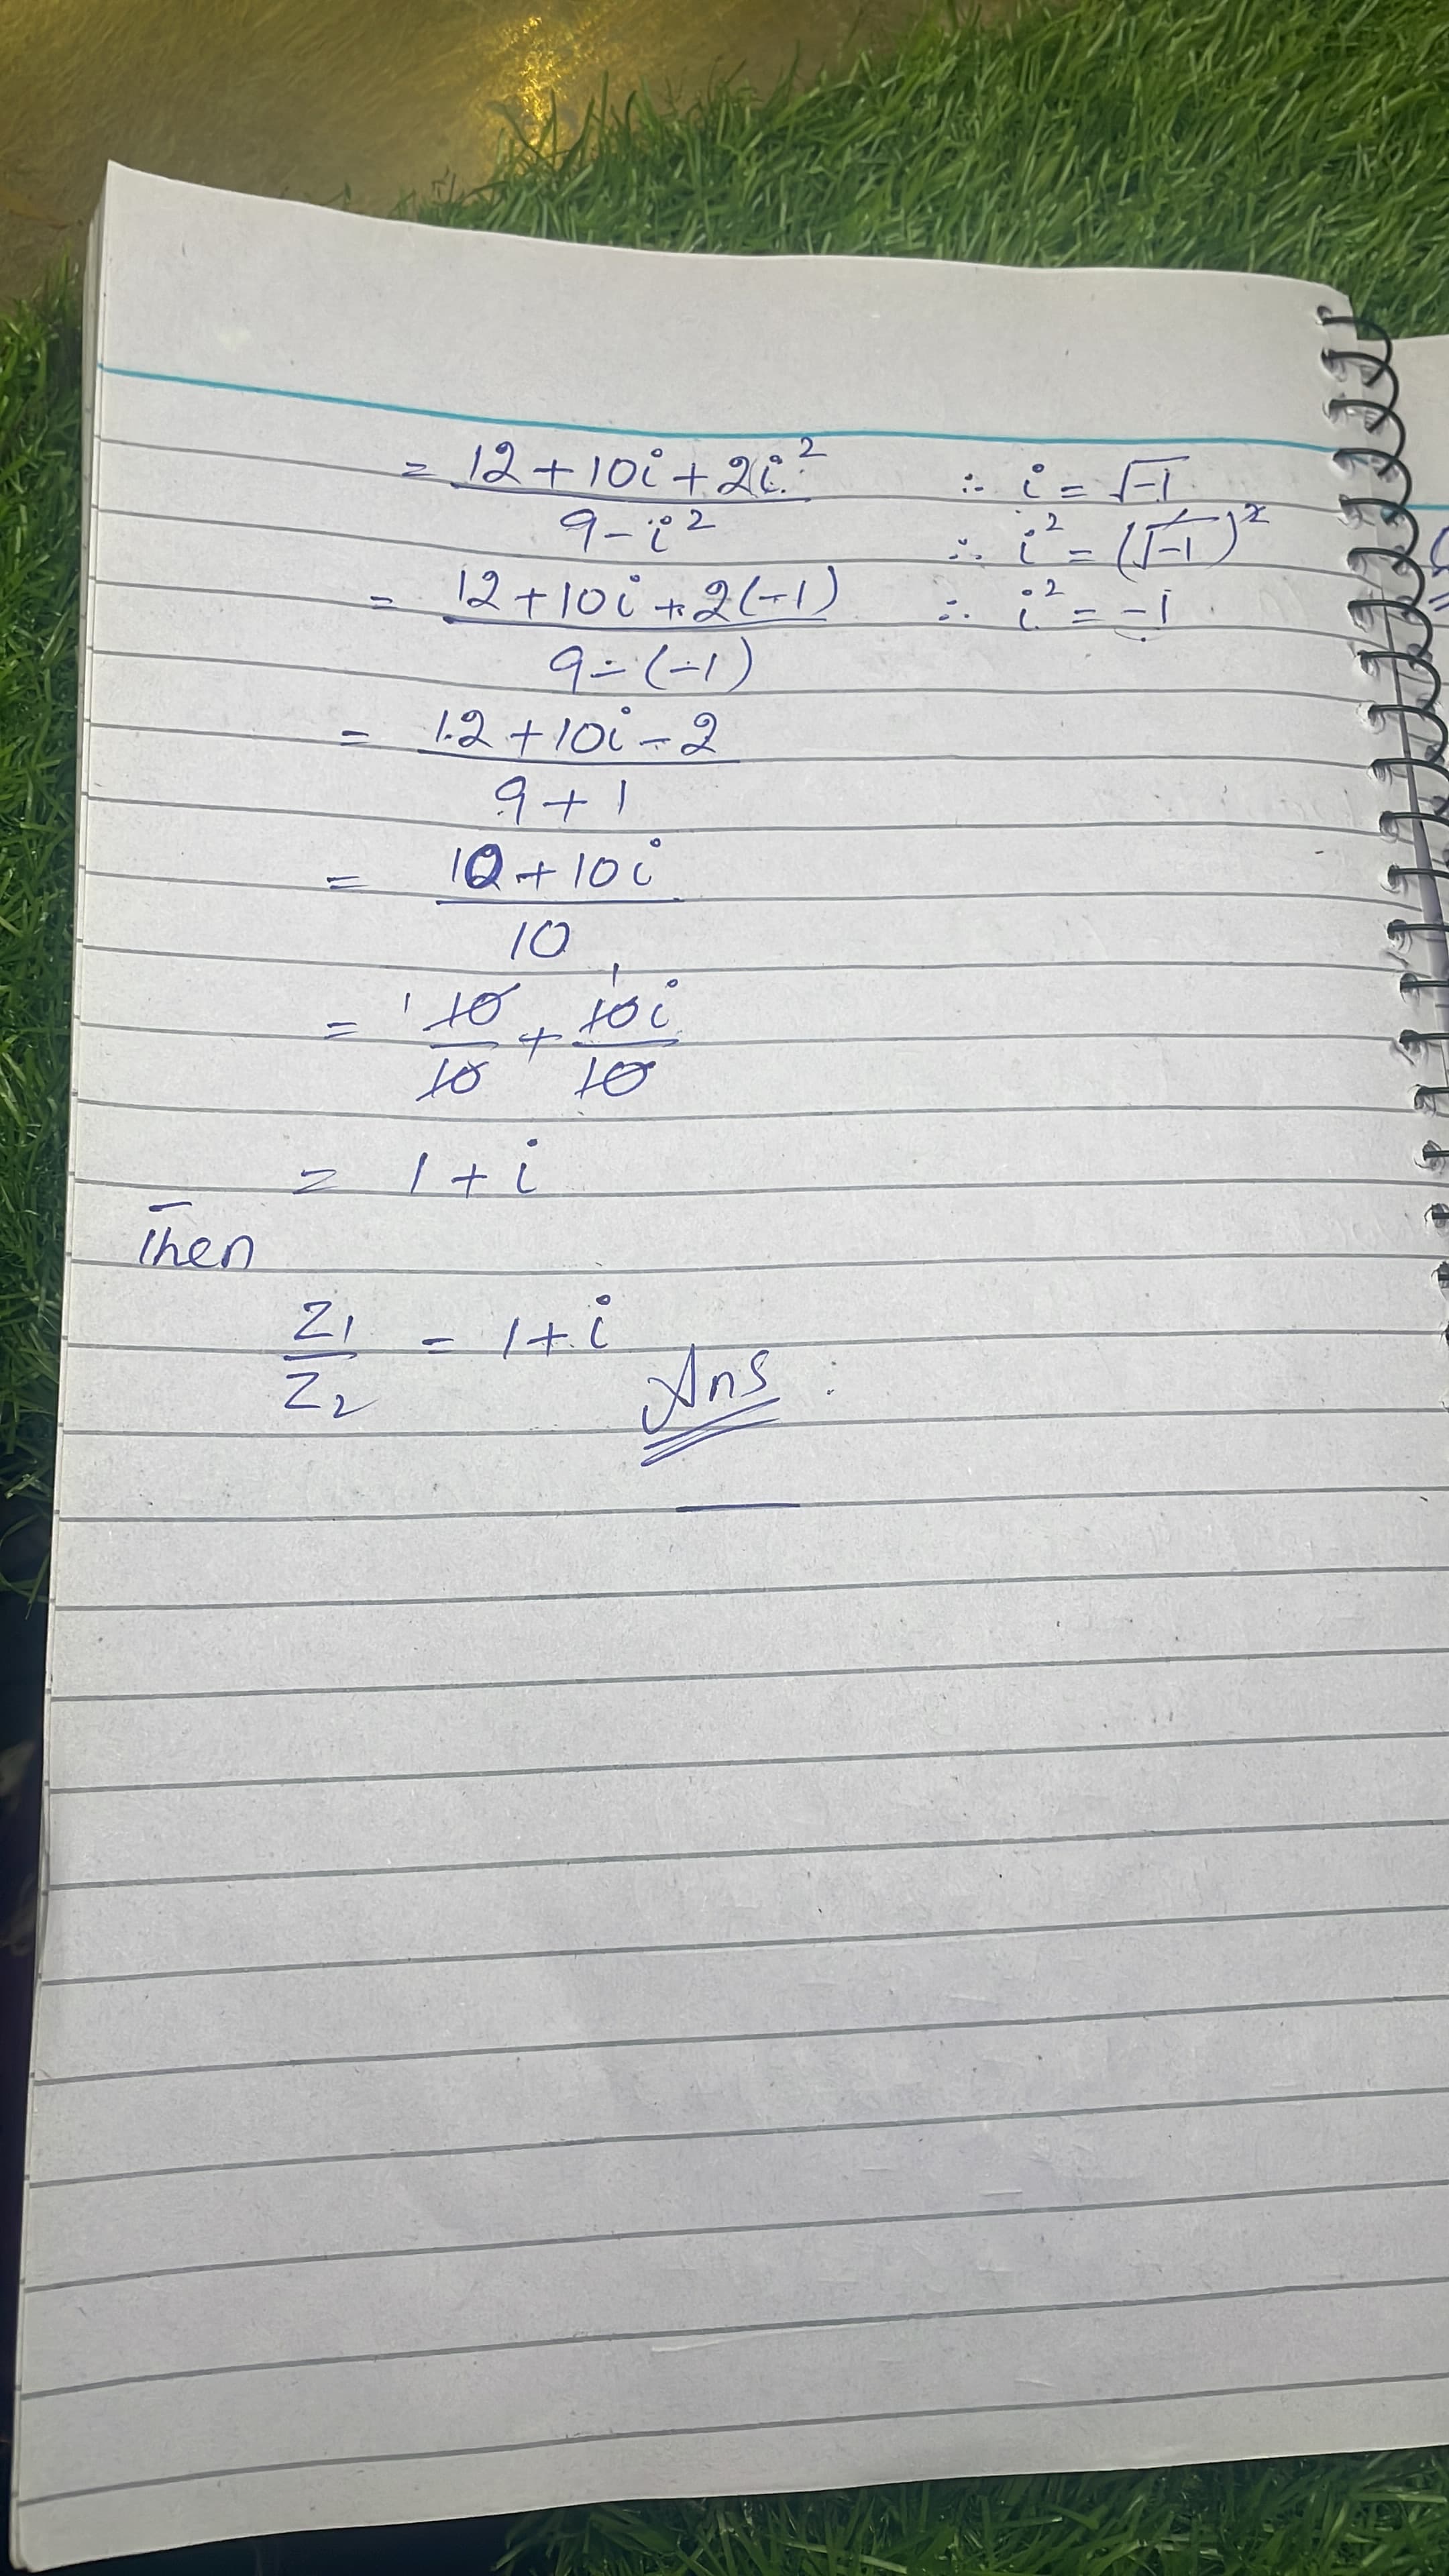 = 12 + 10i + 2i² / 9 - i² ∴ i = √-1
∴ i² = (√-1)²
= 12 + 10i + 2(-1) / 9 - (-1) ∴ i² = -1
= 12 + 10i - 2 / 9 + 1
= 10 + 10i / 10
= 10/10 + 10i/10
= 1 + i
Then
Z₁/Z₂ = 1 + i
Ans